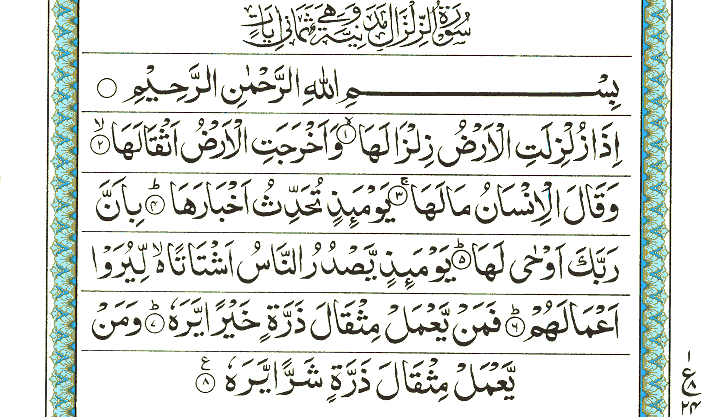 سُوْرَةُ الزِّلْزَالِ مَدَنِيَّةٌ وَّهِيَ ثَمَانِيْ اٰيَاتٍ
بِسْمِ اللهِ الرَّحْمٰنِ الرَّحِيْمِ ○
اِذَا زُلْزِلَتِ الْاَرْضُ زِلْزَالَهَا ۙ﴿۱﴾ وَاَخْرَجَتِ الْاَرْضُ اَثْقَالَهَا ۙ﴿۲﴾
وَقَالَ الْاِنْسَانُ مَا لَهَا ۚ﴿۳﴾ يَوْمَىِٕذٍ تُحَدِّثُ اَخْبَارَهَا ؕ﴿۴﴾ بِاَنَّ
رَبَّكَ اَوْحٰى لَهَا ؕ﴿۵﴾ يَوْمَىِٕذٍ يَّصْدُرُ النَّاسُ اَشْتَاتًا ۬ۙ لِّيُرَوْا
اَعْمَالَهُمْ ؕ﴿۶﴾ فَمَنْ يَّعْمَلْ مِثْقَالَ ذَرَّةٍ خَيْرًا يَّرَهٗ ؕ﴿۷﴾ وَمَنْ
يَّعْمَلْ مِثْقَالَ ذَرَّةٍ شَرًّا يَّرَهٗ ﴿۸﴾ ع
۱
ع
۸
۲۴